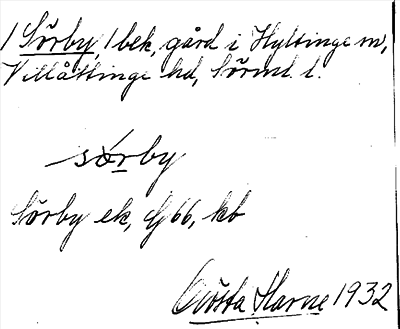 1 Sörby, 1 bek, gård i Hyltinge sn,
Villåttinge hd, Sörml l.
sörby
Sörby ek, G 66, kb
Gösta Harne 1932